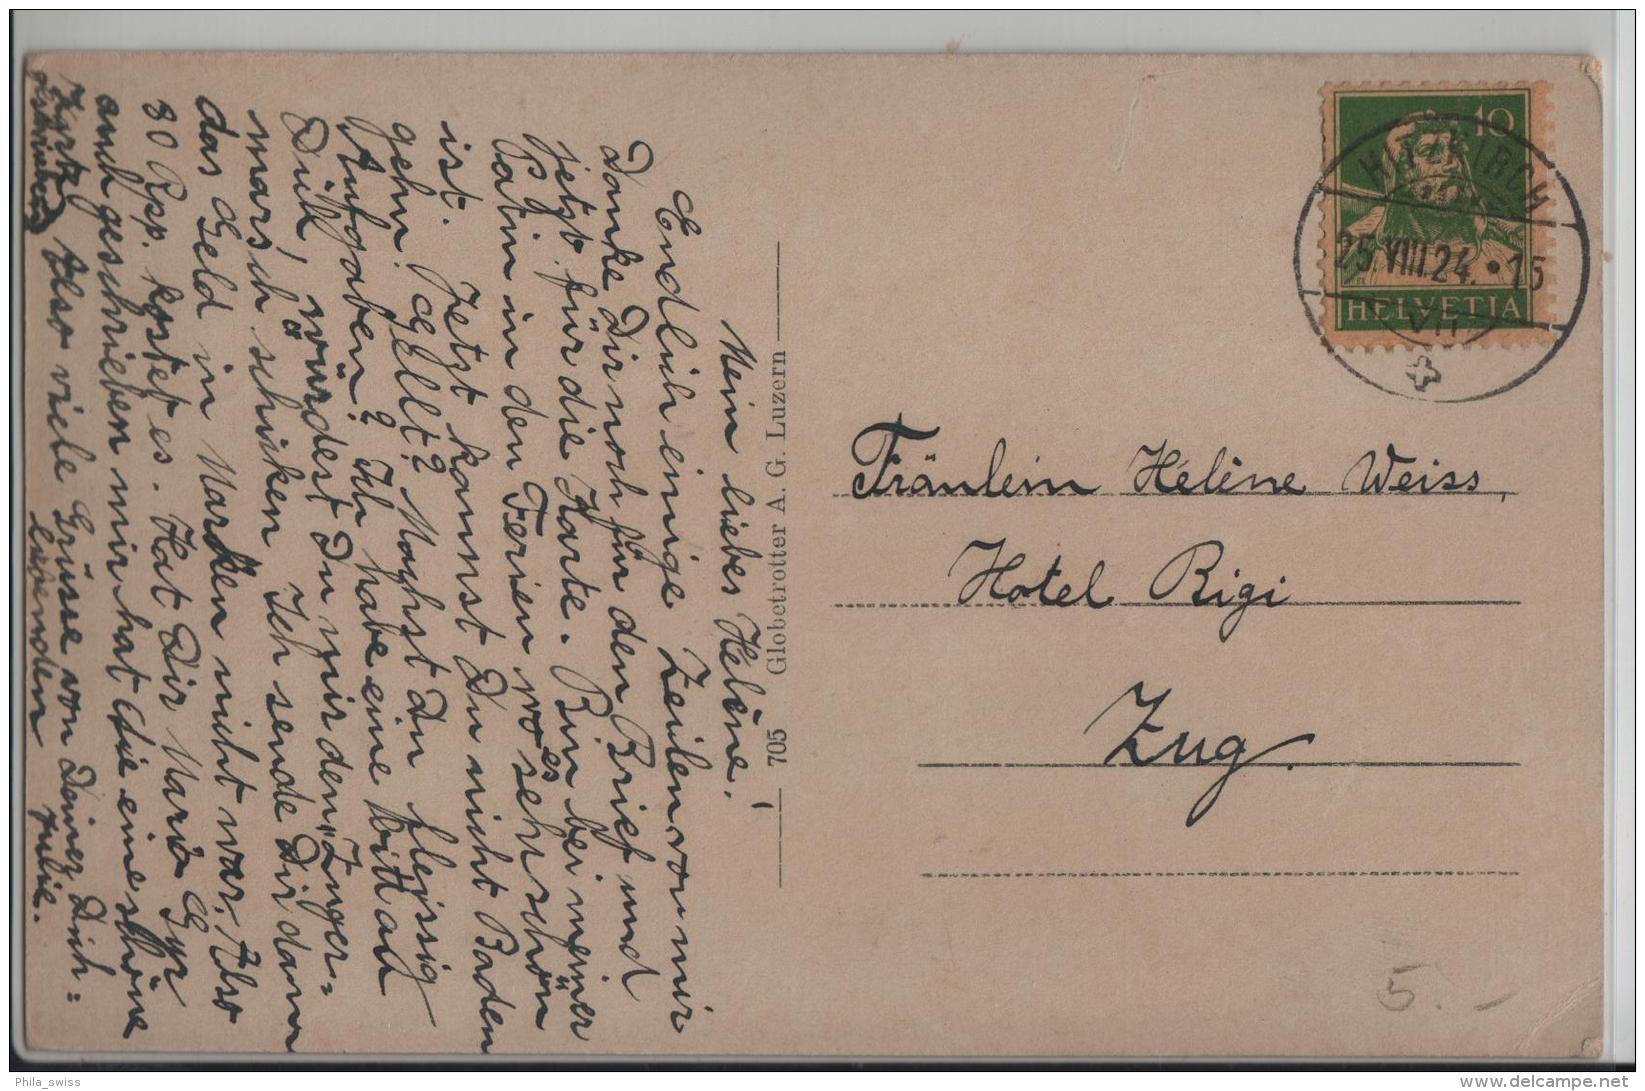 Mein liebes Helène!
Endlich einige Zeilen von mir
Danke Dir noch für den Brief und
jetzt für die Karte. Bin bei meiner
Patin in den Ferien wo es sehr schön
ist. Jetzt kannst Du nicht Baden
gehn gellt? Machst Du fleissig
Aufgaben? Ich habe eine bitt an
Dich, würdest Du mir den Zuger=
marsch schicken Ich sende Dir dann
das Geld in Marken nicht war, Also
80 Rpp. kostet es. Hat Dir Maria Gyr
auch geschrieben mir hat die eine schöne
Karte geschrieben Also viele Grüsse von Deiner Dich=
liebenden Julie.
705 Globetrotter A. G. Luzern
10
HELVETIA
HITZKIRCH
25.VIII.24.•15
VII
Fräulein Hélène Weiss,
Hotel Rigi
Zug.
5.-
Phila_swiss
delcampe.net